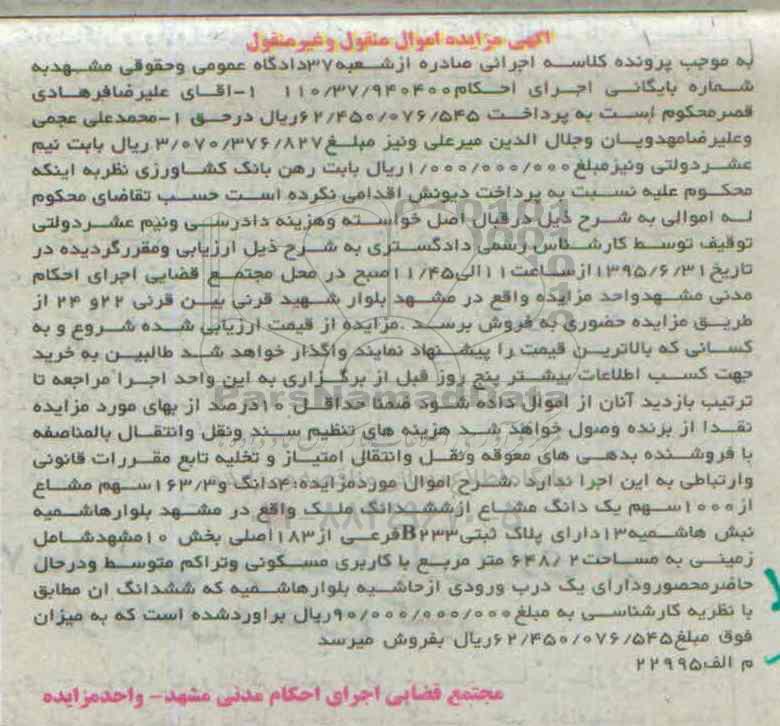 آگهی مزایده اموال منقول وغیرمنقول
به موجب پرونده کلاسه اجرائی صادره ازشعبه۳۷دادگاه عمومی وحقوقی مشهدبه
شماره بایگانی اجرای احکام۱۱۰/۳۷/۹۴۰۴۰۰ ۱-اقای علیرضافرهادی
قصرمحکوم است به پرداخت ۶۲/۴۵۰/۰۷۶/۵۴۵ریال درحق ۱-محمدعلی عجمی
وعلیرضامهدویان وجلال الدین میرعلی ونیز مبلغ۳/۰۷۰/۳۷۶/۸۲۷ ریال بابت نیم
عشردولتی ونیزمبلغ۱/۰۰۰/۰۰۰/۰۰۰ریال بابت رهن بانک کشاورزی نظربه اینکه
محکوم علیه نسبت به پرداخت دیونش اقدامی نکرده است حسب تقاضای محکوم
له اموالی به شرح ذیل درقبال اصل خواسته وهزینه دادرسی ونیم عشردولتی
توقیف توسط کارشناس رسمی دادگستری به شرح ذیل ارزیابی ومقررگردیده در
تاریخ۱۳۹۵/۶/۳۱ازساعت۱۱الی۱۱/۴۵صبح در محل مجتمع قضایی اجرای احکام
مدنی مشهدواحد مزایده واقع در مشهد بلوار شهید قرنی بین قرنی ۲۲و ۲۴ از
طریق مزایده حضوری به فروش برسد .مزایده از قیمت ارزیابی شده شروع و به
کسانی که بالاترین قیمت را پیشنهاد نمایند واگذار خواهد شد طالبین به خرید
جهت کسب اطلاعات بیشتر پنج روز قبل از برگزاری به این واحد اجرا مراجعه تا
ترتیب بازدید آنان از اموال داده شود ضمنا حداقل ۱۰درصد از بهای مورد مزایده
نقدا از برنده وصول خواهد شد هزینه های تنظیم سند ونقل وانتقال بالمناصفه
با فروشنده بدهی های معوقه ونقل وانتقال امتیاز و تخلیه تابع مقررات قانونی
وارتباطی به این اجرا ندارد شرح اموال موردمزایده:۴دانگ و۱۶۳/۳سهم مشاع
از۱۰۰۰سهم یک دانگ مشاع ازششدانگ ملک واقع در مشهد بلوارهاشمیه
نبش هاشمیه۱۳دارای پلاک ثبتیB۲۳۳فرعی از۱۸۳اصلی بخش ۱۰مشهدشامل
زمینی به مساحت۶۴۸/۲ متر مربع با کاربری مسکونی وتراکم متوسط ودرحال
حاضرمحصورودارای یک درب ورودی ازحاشیه بلوارهاشمیه که ششدانگ ان مطابق
با نظریه کارشناسی به مبلغ۹۰/۰۰۰/۰۰۰/۰۰۰ریال براوردشده است که به میزان
فوق مبلغ۶۲/۴۵۰/۰۷۶/۵۴۵ریال بفروش میرسد
م الف۲۲۹۹۵
مجتمع قضایی اجرای احکام مدنی مشهد- واحدمزایده
ParsNamadData